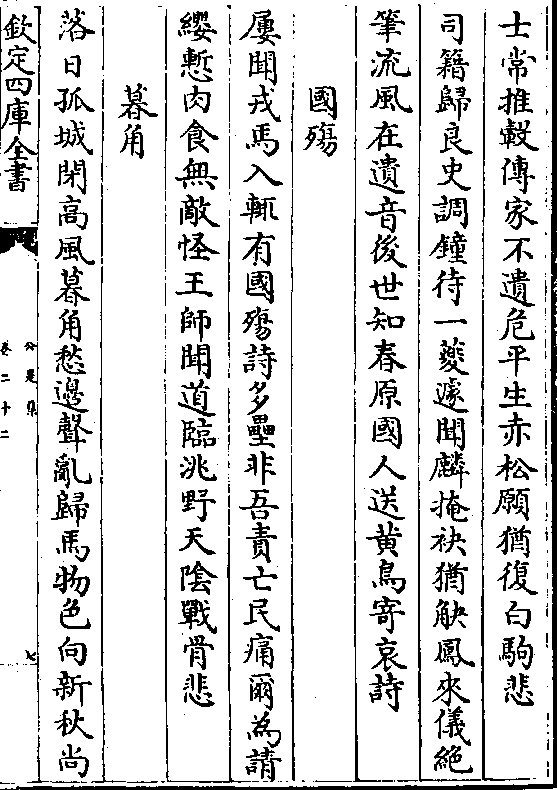 士常推轂傳家不遺危平生赤松願猶復白駒悲
司籍歸良史調鐘待一夔遽聞麟掩袂猶觖鳳來儀絶
筆流風在遺音後世知春原國人送黄鳥寄哀詩
國殤
屢聞戎馬入輒有國殤詩多壘非吾責亡民痛爾為請
纓慙肉食無敵怪王師聞道臨洮野天陰戰骨悲
暮角
落日孤城閉高風暮角愁邊聲亂歸馬物色向新秋尚
欽定四庫全書
公是集
卷二十二
七